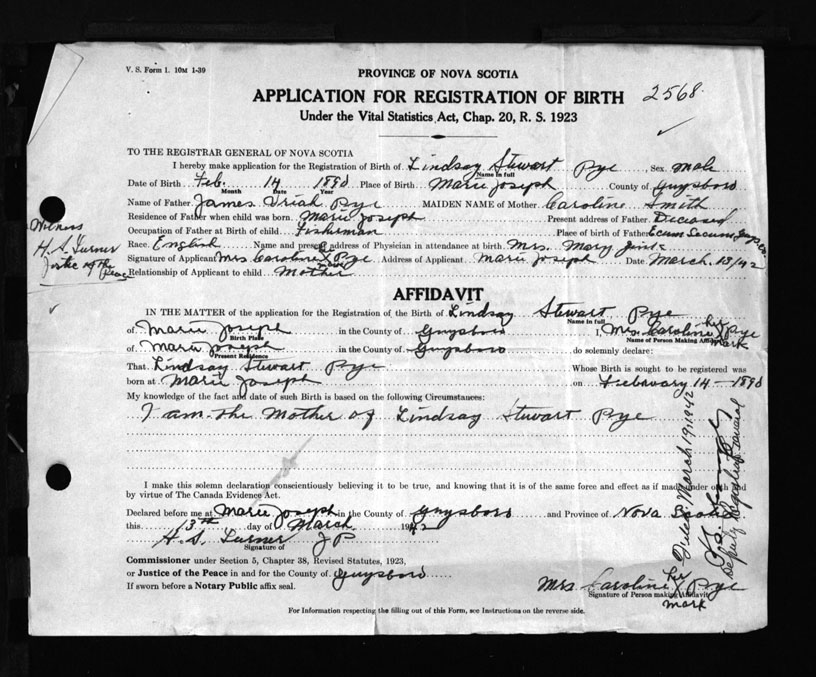 V. S. Form 1. 10M 1-39
PROVINCE OF NOVA SCOTIA
APPLICATION FOR REGISTRATION OF BIRTH 2568
Under the Vital Statistics Act, Chap. 20, R. S. 1923
TO THE REGISTRAR GENERAL OF NOVA SCOTIA
I hereby make application for the Registration of Birth of Lindsay Stewart Pye Sex Male
Name in full
Date of Birth Feb. 14 1890 Place of Birth Marie Joseph County of Guysboro
Month Date Year
Name of Father James Uriah Pye MAIDEN NAME of Mother Caroline Smith
Residence of Father when child was born Marie Joseph Present address of Father Diceased
Occupation of Father at Birth of child Fisherman Place of birth of Father Ecum Secum
Race English Name and present address of Physician in attendance at birth Mrs. Mary
Signature of Applicant Mrs Caroline X Pye Address of Applicant Marie Joseph Date March 13/42
Relationship of Applicant to child Mother
Witness
H. S. Turner
Justice of the Peace
AFFIDAVIT
IN THE MATTER of the application for the Registration of the Birth of Lindsay Stewart Pye
Name in full
of Marie Joseph in the County of Guysboro I, Mrs. Caroline her X Pye
Birth Place Name of Person Making Affidavit Mark
of Marie Joseph in the County of Guysboro do solemnly declare:
Present Residence
That Lindsay Stewart Pye Whose Birth is sought to be registered was
born at Marie Joseph on February 14 - 1890
My knowledge of the fact and date of such Birth is based on the following Circumstances:
I am the Mother of Lindsay Stewart Pye
I make this solemn declaration conscientiously believing it to be true, and knowing that it is of the same force and effect as if made under oath and
by virtue of The Canada Evidence Act.
Declared before me at Marie Joseph in the County of Guysboro and Province of Nova Scotia
this 13th day of March 1942
H. S. Turner J P
Signature of
Commissioner under Section 5, Chapter 38, Revised Statutes, 1923,
or Justice of the Peace in and for the County of Guysboro
If sworn before a Notary Public affix seal.
Mrs. Caroline her X Pye
Signature of Person making Affidavit
Mark
Filed March 19, 1942
Deputy Registrar General
For Information respecting the filling out of this Form, see Instructions on the reverse side.